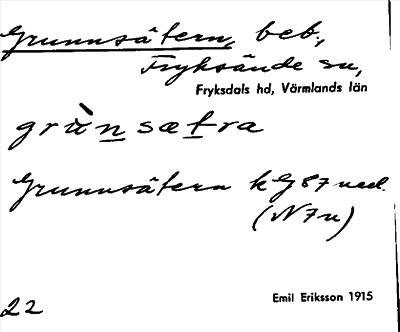 Grunnsätern, beb.,
Fryksände sn,
Fryksdals hd, Värmlands län
grùnsætra
Grunnsätern kG87 ned.
(N7u)
22
Emil Eriksson 1915